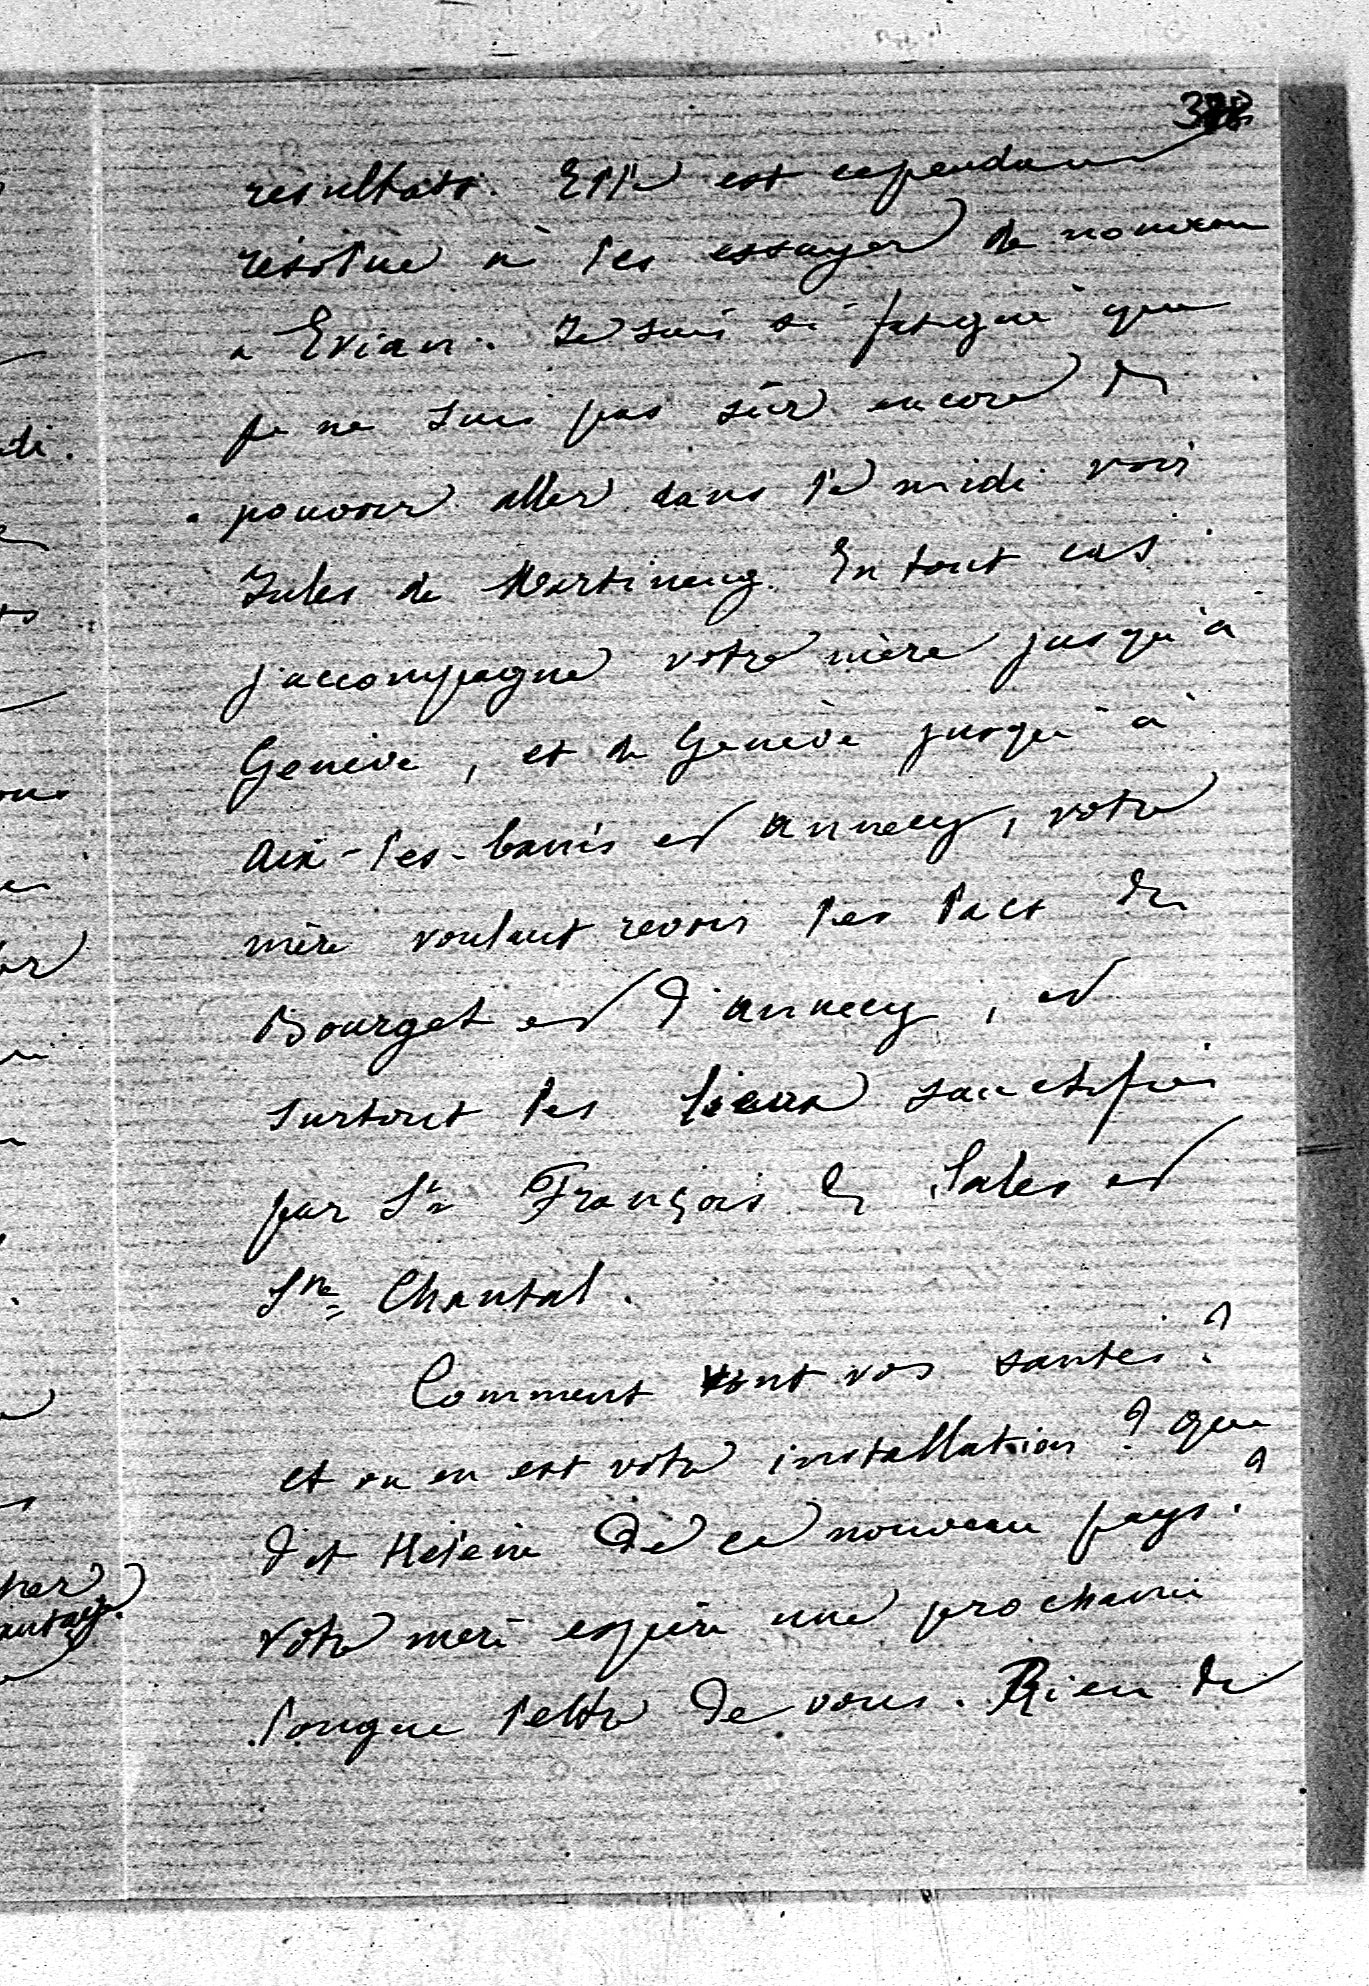 resultats. Elle est cependant
résolue à les essayer de nouveau
a Evian. Je suis si fatigué que
je ne suis pas sûr encore de
pouvoir aller dans le midi voir
Jules de Martineng. En tout cas
j'accompagne votre mère jusqu'à
Genève, et de Genève jusqu'à
Aix-les-bains et Annecy, votre
mère voulant revoir les lacs du
Bourget et d'Annecy, et
surtout les lieux sanctifiés
par St François de Sales et
Ste Chantal.
Comment vont vos santés ?
et ou en est votre installation ? que
dit Hélène de ce nouveau pays ?
Votre mère espère une prochaine
longue lettre de vous. Rien de